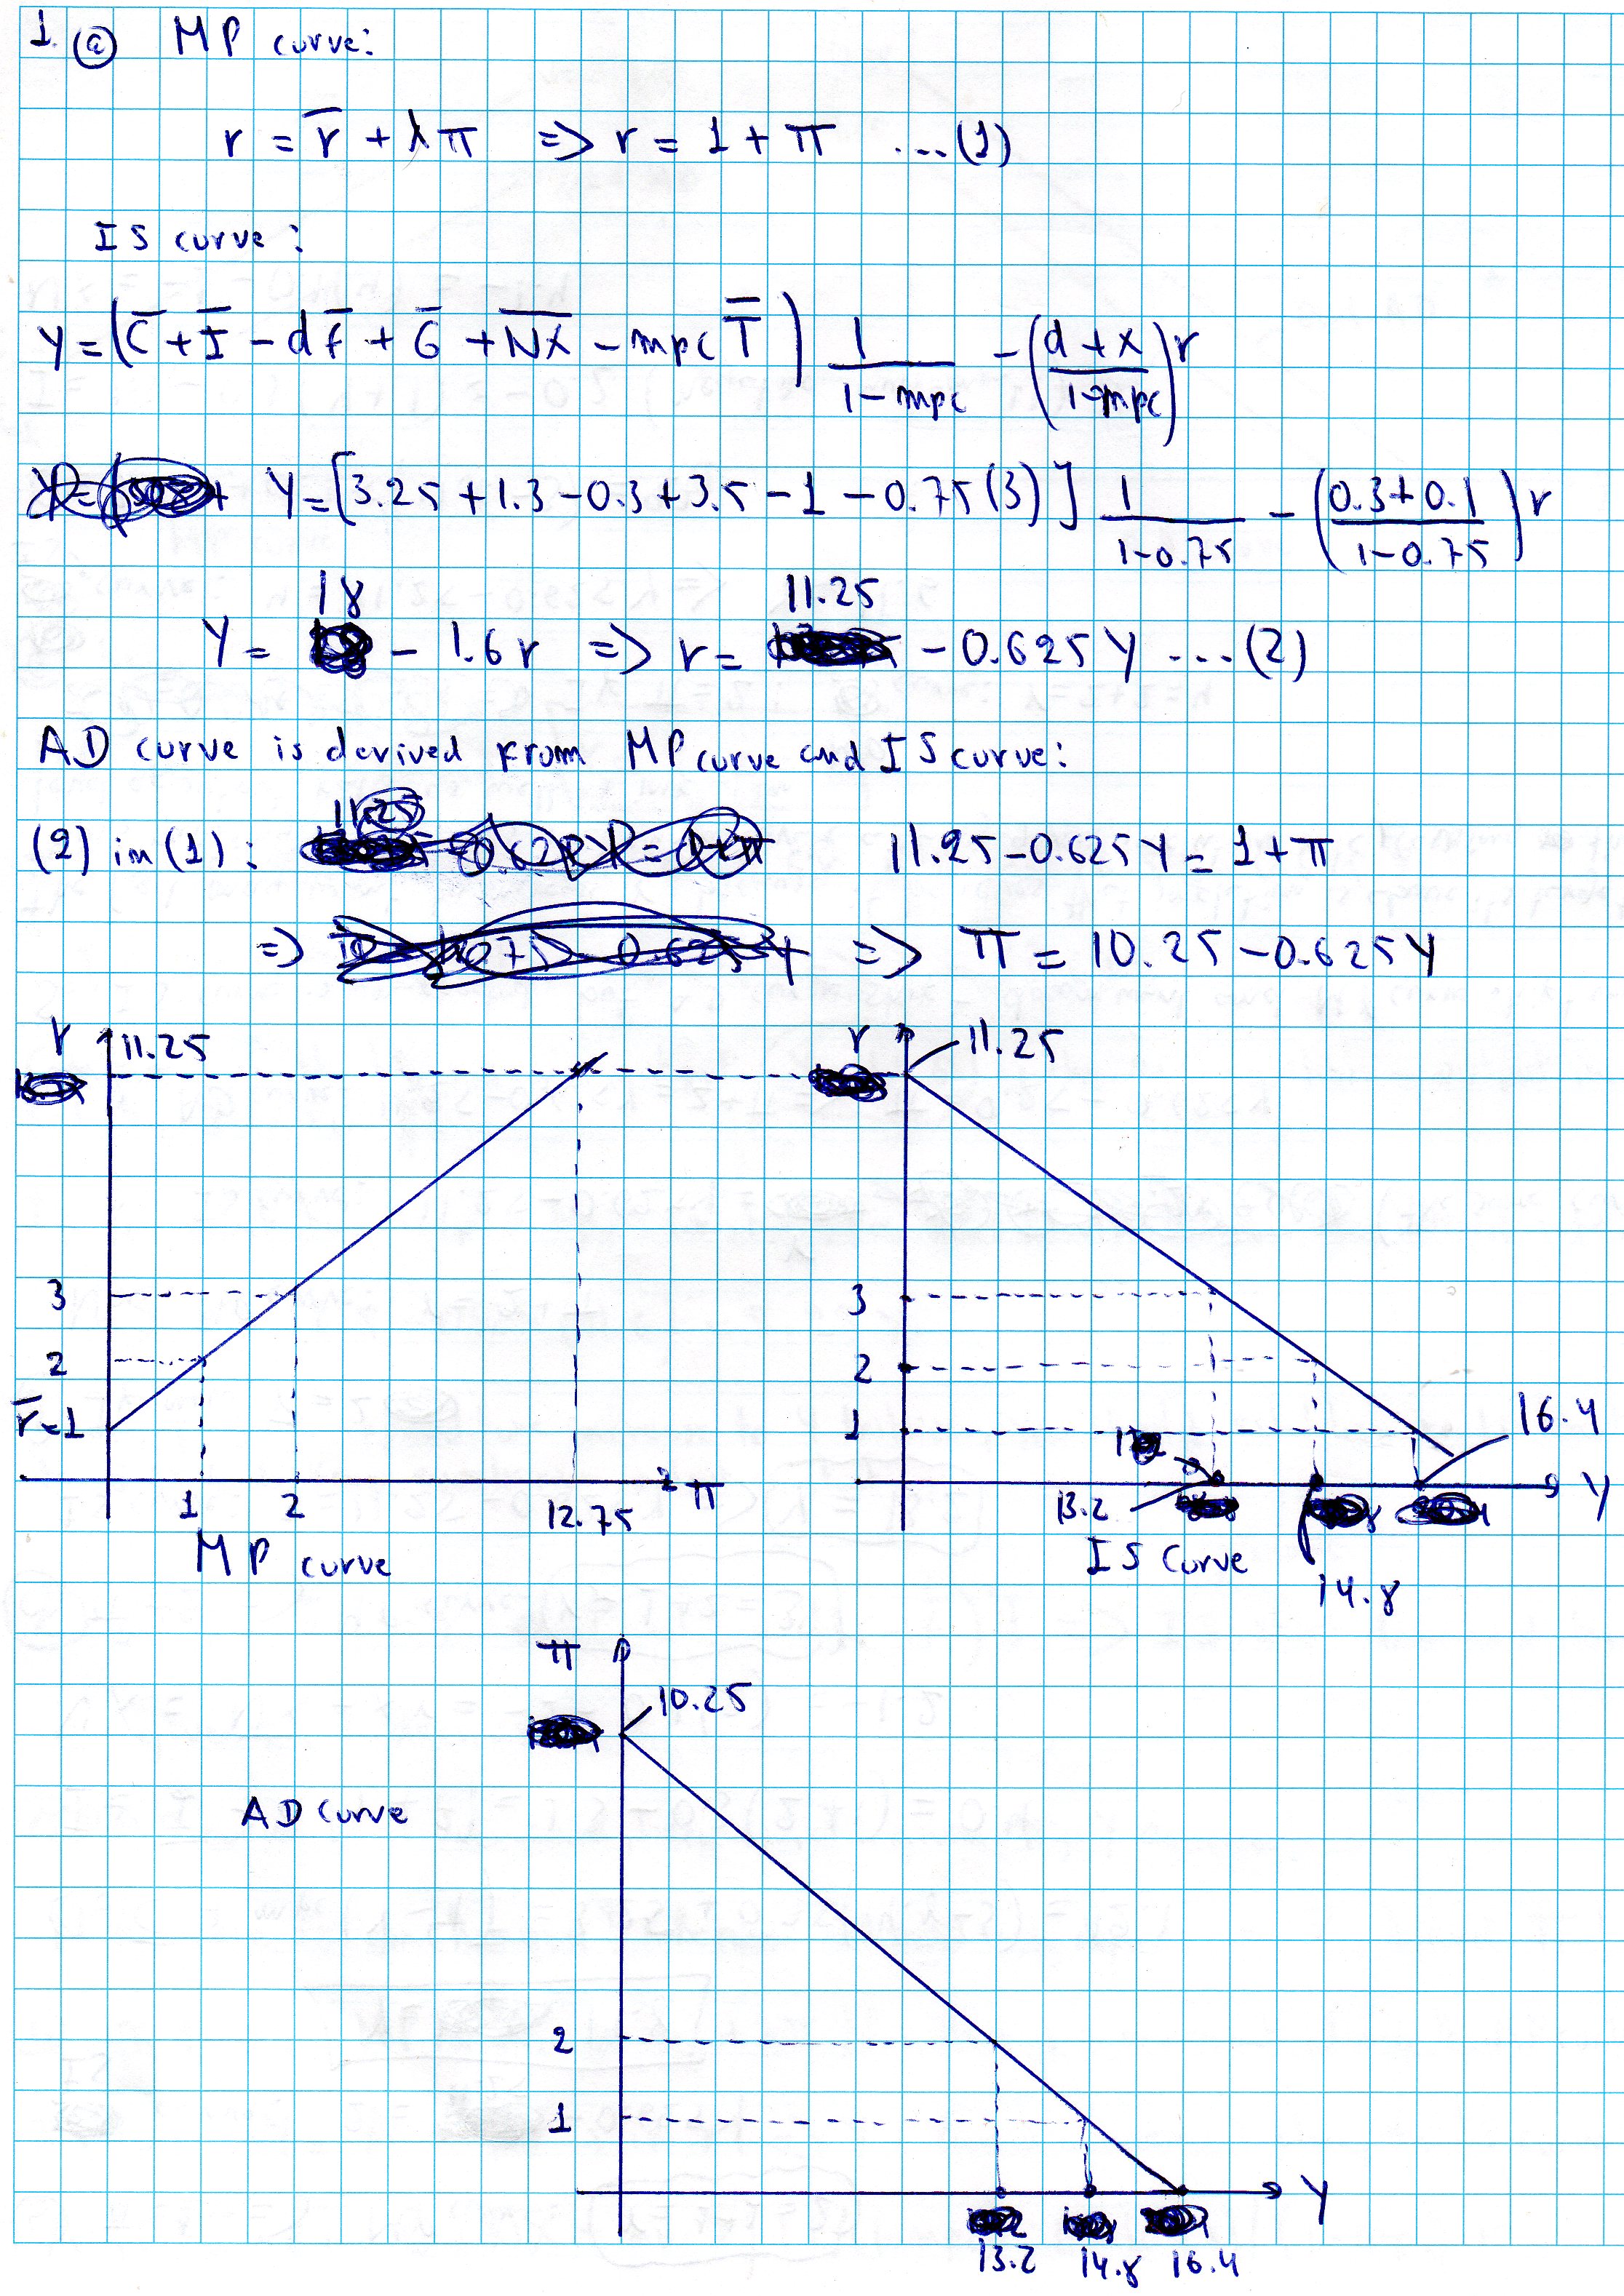 1. ⓐ MP curve:
r = r̅ + λπ => r = 1 + π ...(1)
IS curve:
Y = (C̅ + I̅ - df̅ + G̅ + N̅X̅ - mpc T̅) 1/(1-mpc) - ((d+x)/(1-mpc)) r
Y = [3.25 + 1.3 - 0.3 + 3.5 - 1 - 0.75(3)] 1/(1-0.75) - ((0.3+0.1)/(1-0.75)) r
Y = 18 - 1.6r => r = 11.25 - 0.625Y ...(2)
AD curve is derived from MP curve and IS curve:
(2) in (1): 11.25 - 0.625Y = 1 + π
=> => π = 10.25 - 0.625Y
r 11.25
3
2
r̅=1
1 2 12.75 π
MP curve
r 11.25
3
2
1
16.4
13.2
Y
IS curve
14.8
π
10.25
AD curve
2
1
Y
13.2 14.8 16.4